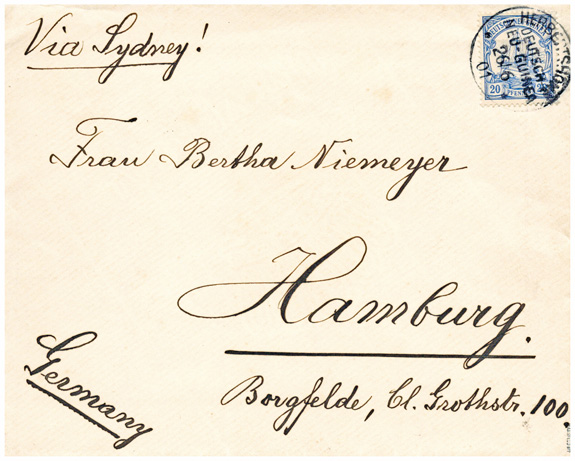 Via Sydney!
HERBERTSHÖHE
DEUTSCH-
NEU-GUINEA
26/6
01
20
Frau Bertha Niemeyer
Hamburg.
Germany
Borgfelde, Cl. Grothstr. 100.